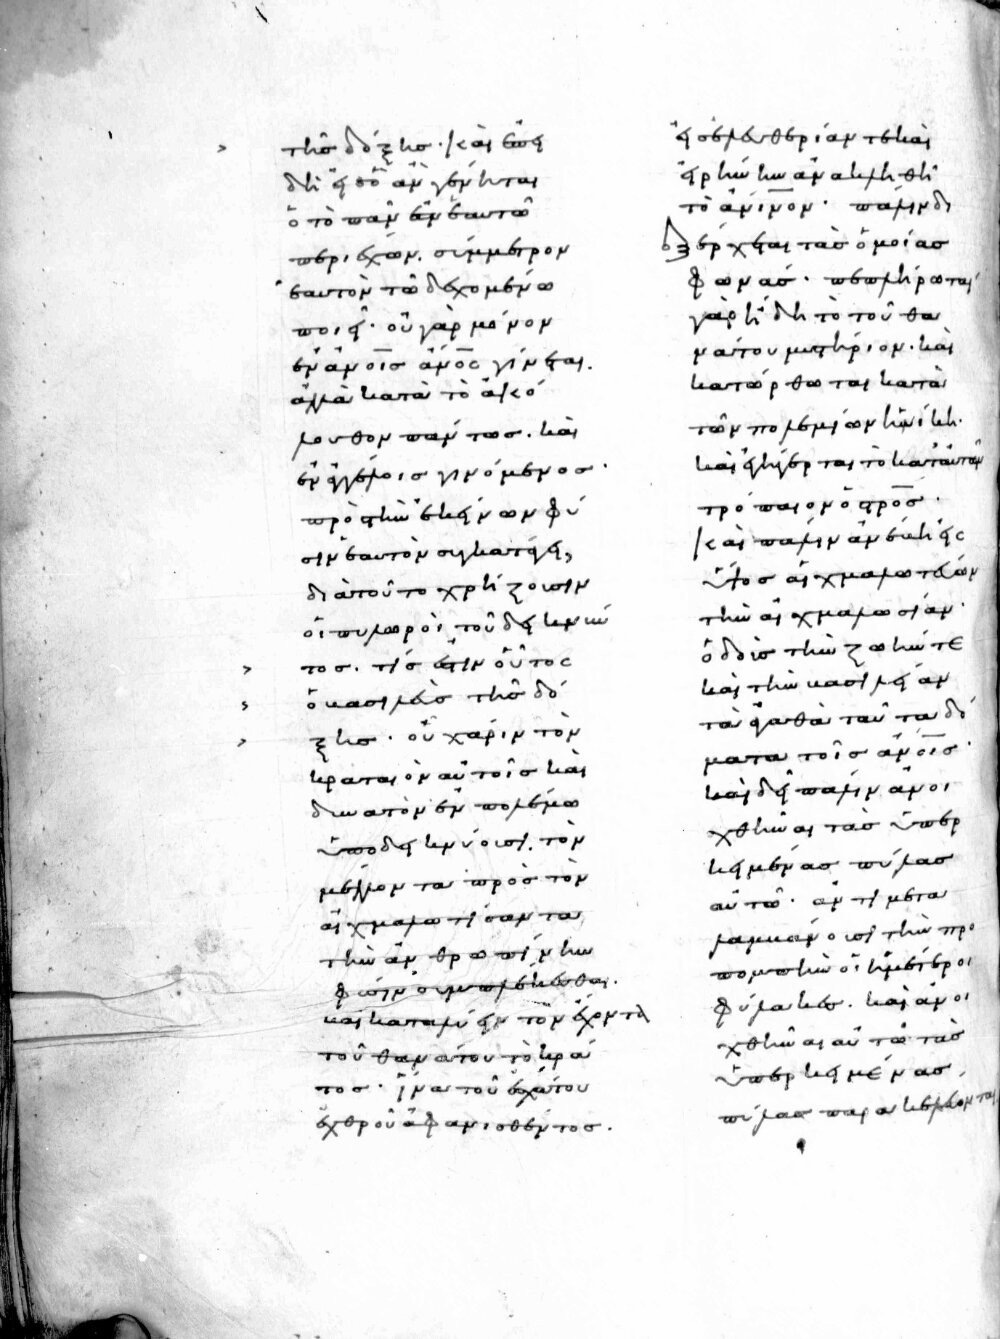 τῆς δόξης· καὶ ἐπει
δὴ ἐφ' οὗ ἂν γένηται
ὁ τὸ πᾶν ἐν ἑαυτῶ
περιέχων. σύμμετρον
ἑαυτὸν τῶ δεχομένω
ποιεῖ· οὐ γὰρ μόνον
ἐν ἀνοις ἀνος γίνεται.
ἀλλὰ κατὰ τὸ ἀκό
λουθον πάντως. καὶ
ἐν ἀγγέλοις γινόμενος·
πρὸς τὴν ἐκείνων φύ
σιν ἑαυτὸν συγκατάγει,
διὰ τοῦτο χρήζουσιν
οἱ πυλωροὶ τοῦ δεικνύν
τος. τίς ἐστιν οὗτος
ὁ βασιλεὺς τῆς δό
ξης· οὗ χάριν τὸν
κραταιὸν αὐτοῖς καὶ
δυνατὸν ἐν πολέμω
ὑποδεικνύουσι. τὸν
μέλλοντα πρὸς τὸν
αἰχμαλωτίσαντα
τὴν ἀνθρωπίνην
φύσιν συμπλέκεσθαι.
καὶ καταλύειν τὸν ἔχοντα
τοῦ θανάτου τὸ κρά
τος· ἵνα τοῦ ἐσχάτου
ἐχθροῦ ἀφανισθέντος.
εἰς ἐλευθερίαν τε καὶ
εἰρήνην ἀνακληθῆ
τὸ ἀνινον· πάλιν δι
εξέρχεται τὰς ὁμοίας
φωνάς· πεπλήρωται
γὰρ ἤδη τὸ τοῦ θα
νάτου μυστήριον· καὶ
κατώρθωται κατὰ
τῶν πολεμίων ἡ νίκη·
καὶ ἐγήγερται τὸ κατ' αὐτῶν
τρόπαιον ὁ στρος·
καὶ πάλιν ἀνέβη εἰς
ὕψος αἰχμαλωτεύων
τὴν αἰχμαλωσίαν·
ὁ δοὺς τὴν ζωήν τε
καὶ τὴν βασιλείαν
τὰ ἀγαθὰ ταῦτα δό
ματα τοῖς ἀνοις·
καὶ δεῖ πάλιν ἀνοι
χθῆναι τὰς ὑπερ
κειμένας πύλας
αὐτῶ· ἀντιμετα
λαμβάνουσι τὴν προ
πομπὴν οἱ ἡμέτεροι
φύλακες. καὶ ἀνοι
χθῆναι αὐτῶ τὰς
ὑπερκειμένας
πύλας παρακελεύονται